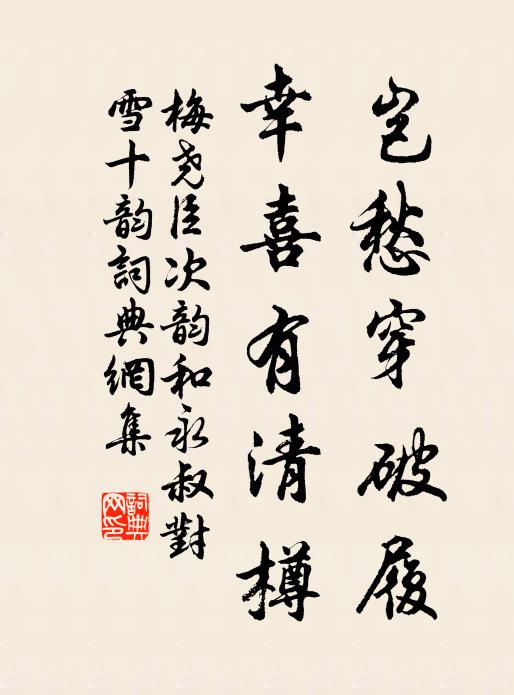 岂愁穿破履
幸喜有清樽
梅尧臣次韵和永叔對
雪十韵詞典網集
詞典网印